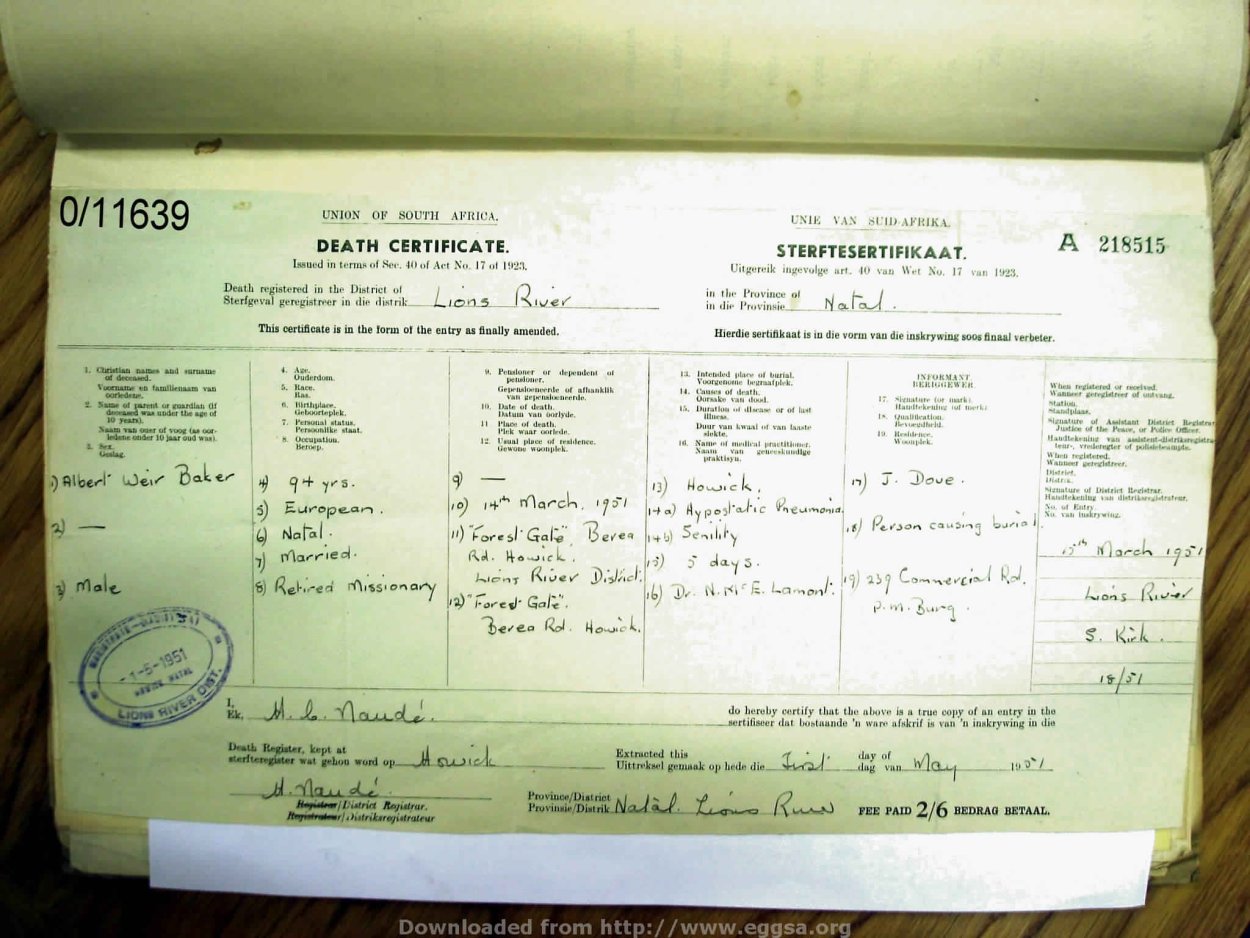 0/11639
UNION OF SOUTH AFRICA.
DEATH CERTIFICATE.
Issued in terms of Sec. 40 of Act No. 17 of 1923.
UNIE VAN SUID-AFRIKA.
STERFTESERTIFIKAAT.
Uitgereik ingevolge art. 40 van Wet No. 17 van 1923.
A 218515
Death registered in the District of
Sterfgeval geregistreer in die distrik Lions River
in the Province of
in die Provinsie Natal.
This certificate is in the form of the entry as finally amended.
Hierdie sertifikaat is in die vorm van die inskrywing soos finaal verbeter.
1. Christian names and surname
of deceased.
Voorname en familienaam van
oorledene.
2. Name of parent or guardian (if
deceased was under the age of
10 years).
Naam van ouer of voog (as oor-
ledene onder 10 jaar oud was).
3. Sex.
Geslag.
4. Age.
Ouderdom.
5. Race.
Ras.
6. Birthplace.
Geboorteplek.
7. Personal status.
Persoonlike staat.
8. Occupation.
Beroep.
9. Pensioner or dependent of
pensioner.
Gepensioeneerde of afhanklik
van gepensioeneerde.
10. Date of death.
Datum van oorlyde.
11 Place of death.
Plek waar oorlede.
12. Usual place of residence.
Gewone woonplek.
13. Intended place of burial.
Voorgenome begraafplek.
14. Causes of death.
Oorsake van dood.
15. Duration of disease or of last
illness.
Duur van kwaal of van laaste
siekte.
16. Name of medical practitioner.
Naam van geneeskundige
praktisyn.
INFORMANT
BERIGGEWER
17. Signature (or mark).
Handtekening (of merk)
18. Qualification.
Bevoegdheid.
19. Residence.
Woonplek.
When registered or received.
Wanneer geregistreer of ontvang.
Station.
Standplaas.
Signature of Assistant District Registrar
Justice of the Peace, or Police Officer.
Handtekening van assistent-distriksregistra-
teur, vrederegter of polisiebeampte.
When registered.
Wanneer geregistreer.
District.
Distrik.
Signature of District Registrar.
Handtekening van distriksregistrateur.
No. of Entry.
No. van Inskrywing.
1) Albert Weir Baker
2) —
3) Male
4) 94 yrs.
5) European.
6) Natal.
7) Married.
8) Retired Missionary
9) —
10) 14th March, 1951
11) "Forest Gate", Berea
Rd. Howick.
Lions River District.
12) "Forest Gate".
Berea Rd. Howick.
13) Howick.
14a) Hypostatic Pneumonia
14b) Senility
15) 5 days.
16) Dr. N. McE. Lamont.
17) J. Dove.
18) Person causing burial.
19) 239 Commercial Rd.
P.M. Burg.
15th March 1951
Lions River
S. Kirk.
18/51
-1-5-1951
LIONS RIVER DIST.
I,
Ek, H. C. Naudé.
do hereby certify that the above is a true copy of an entry in the
sertifiseer dat bostaande 'n ware afskrif is van 'n inskrywing in die
Death Register, kept at
sterfteregister wat gehou word op Howick
Extracted this
Uittreksel gemaak op hede die First day of
dag van May 1951
H. Naudé
Registrar/District Registrar.
Registrateur/Distriksregistrateur
Province/District
Provinsie/Distrik Natal. Lions River
FEE PAID 2/6 BEDRAG BETAAL.
Downloaded from http://www.eggsa.org